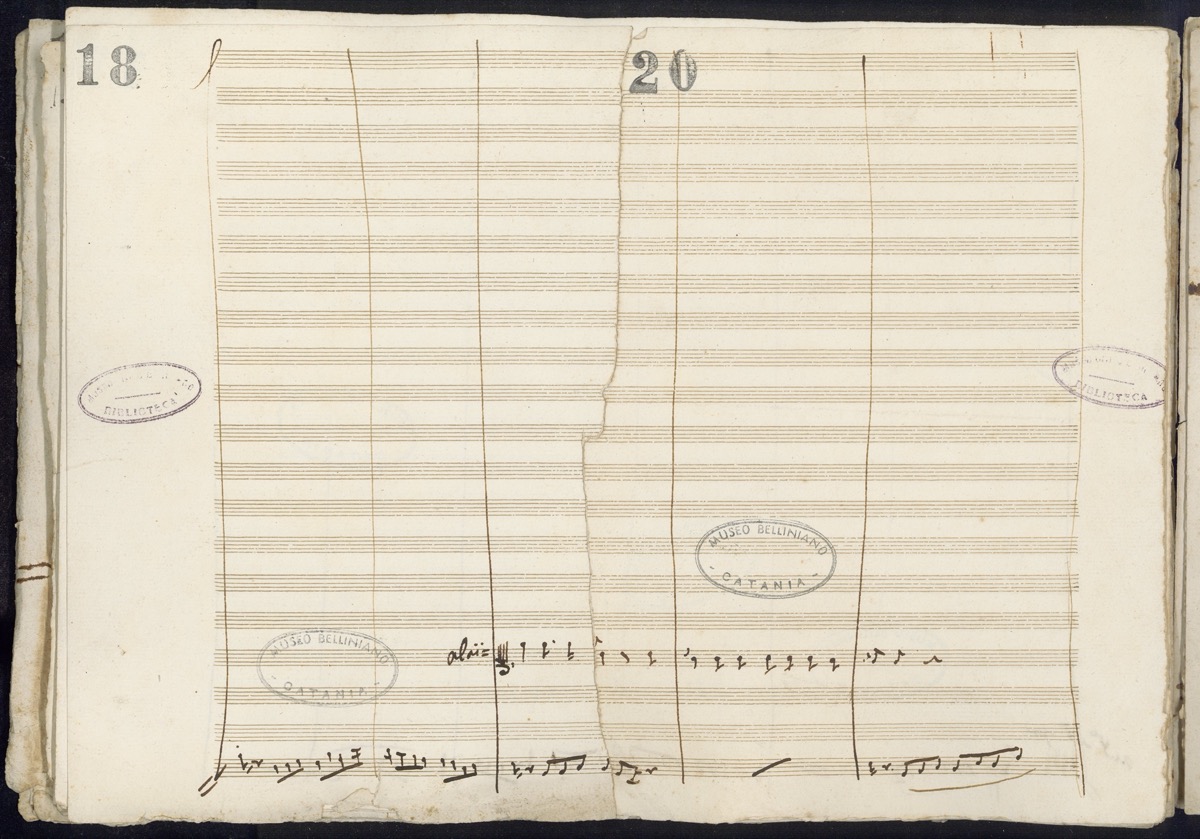 18
20
MUSEO BELLINIANO
BIBLIOTECA
BIBLIOTECA
MUSEO BELLINIANO
- CATANIA -
MUSEO BELLINIANO
- CATANIA -